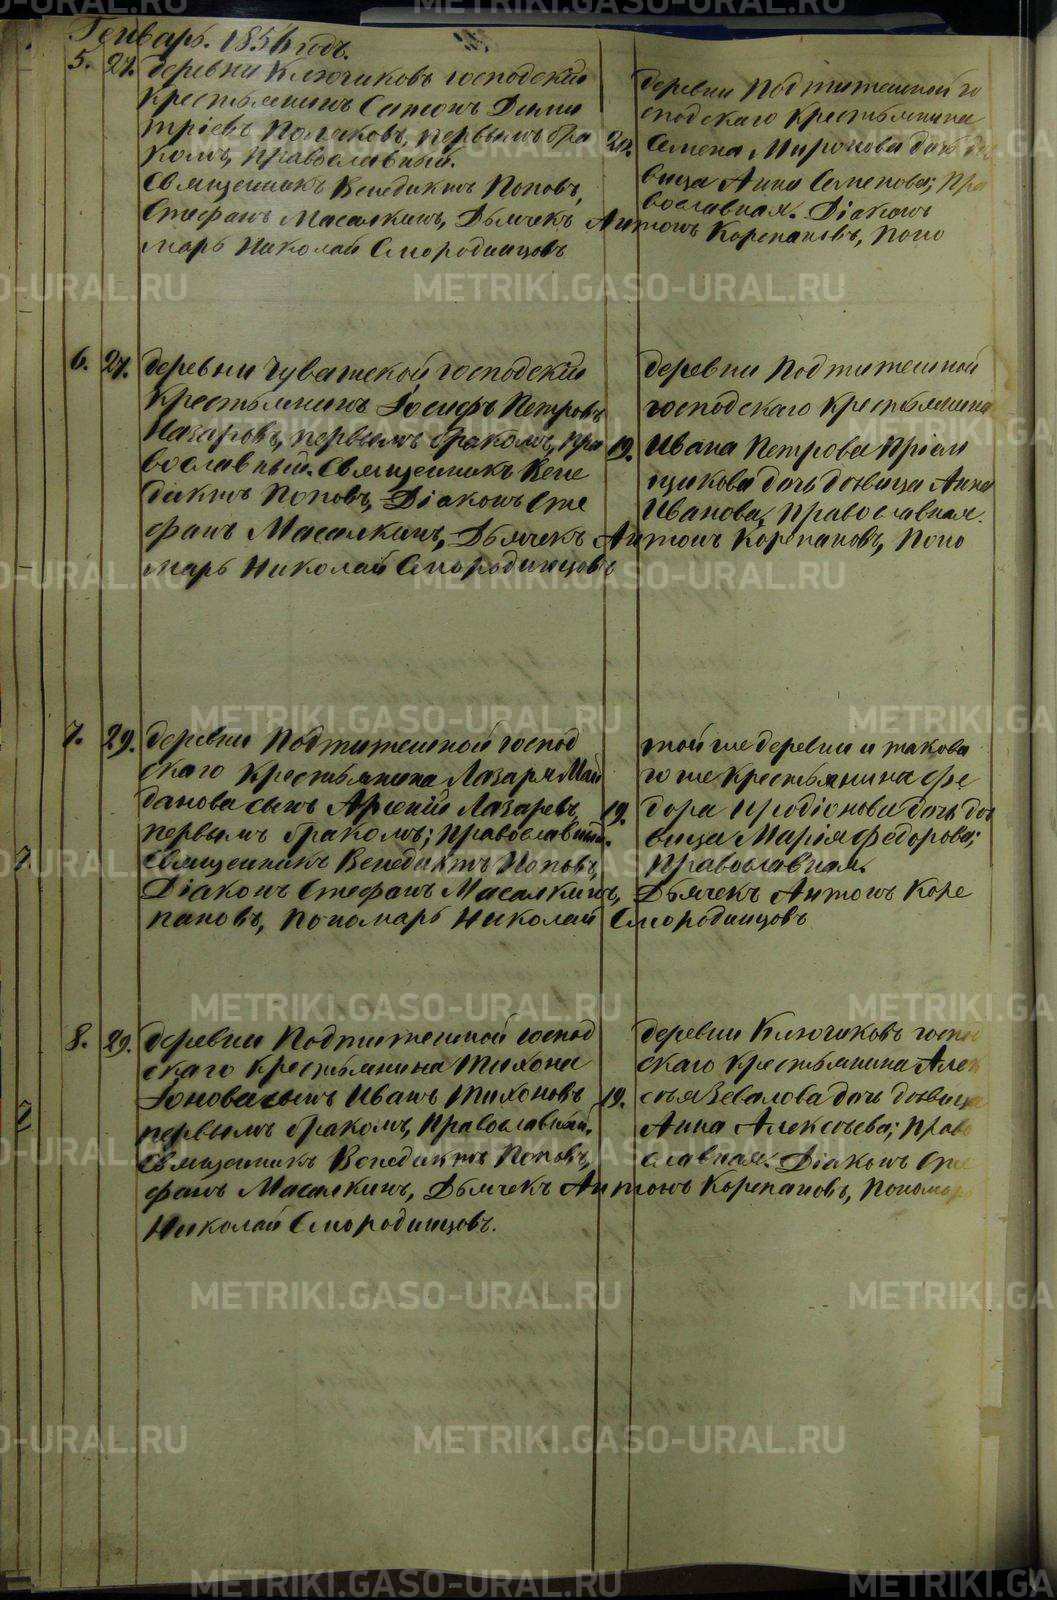 Генварь. 1854 годъ.
5. 27. деревни Ключиковъ господскій
крестьянинъ Сатонъ Дими
тріевъ Поляковъ, первымъ бра
комъ, православный.
Священникъ Венедиктъ Поповъ,
Стефанъ Масалкинъ, Дьячекъ Антонъ Корепановъ, Поно
марь Николай Смородинцовъ
деревни Подтитешной го
сподскаго крестьянина
20. Семена Миронова дочь дѣ
вица Анна Семенова; Пра
вославная. Діаконъ
6. 27. деревни Чувашской господскій
крестьянинъ Іосифъ Петровъ
Назаровъ, первымъ бракомъ, пра
вославный. Священникъ Вене
диктъ Поповъ, Діаконъ Сте
фанъ Масалкинъ, Дьячекъ Антонъ Корепановъ, Поно
марь Николай Смородинцовъ
деревни Подтитешной
господскаго крестьянина
19. Ивана Петрова
дочь дѣвица Анна
Иванова, Православная.
7. 29. деревни Подтитешной господ
скаго крестьянина Лазаря Май
данова сынъ Арсеній Лазаревъ,
первымъ бракомъ; Православный.
Священникъ Венедиктъ Поповъ,
Діаконъ Стефанъ Масалкинъ, Дьячекъ Антонъ Коре
пановъ, Пономарь Николай Смородинцовъ
той же деревни и такова
го же крестьянина Фе
19. дора Иродіонова дочь дѣ
вица Марія Федорова;
Православная.
8. 29. деревни Подтитешной господ
скаго крестьянина Тихона
Іонова сынъ Иванъ Тихоновъ
первымъ бракомъ, Православный.
Священникъ Венедиктъ Поповъ,
фанъ Масалкинъ, Дьячекъ Антонъ Корепановъ, Пономарь
Николай Смородинцовъ.
деревни Ключиковъ господ
скаго крестьянина Алек
19. сѣя Зевалова дочь дѣвица
Анна Алексѣева; Право
славная. Діаконъ Сте
METRIKI.GASO-URAL.RU